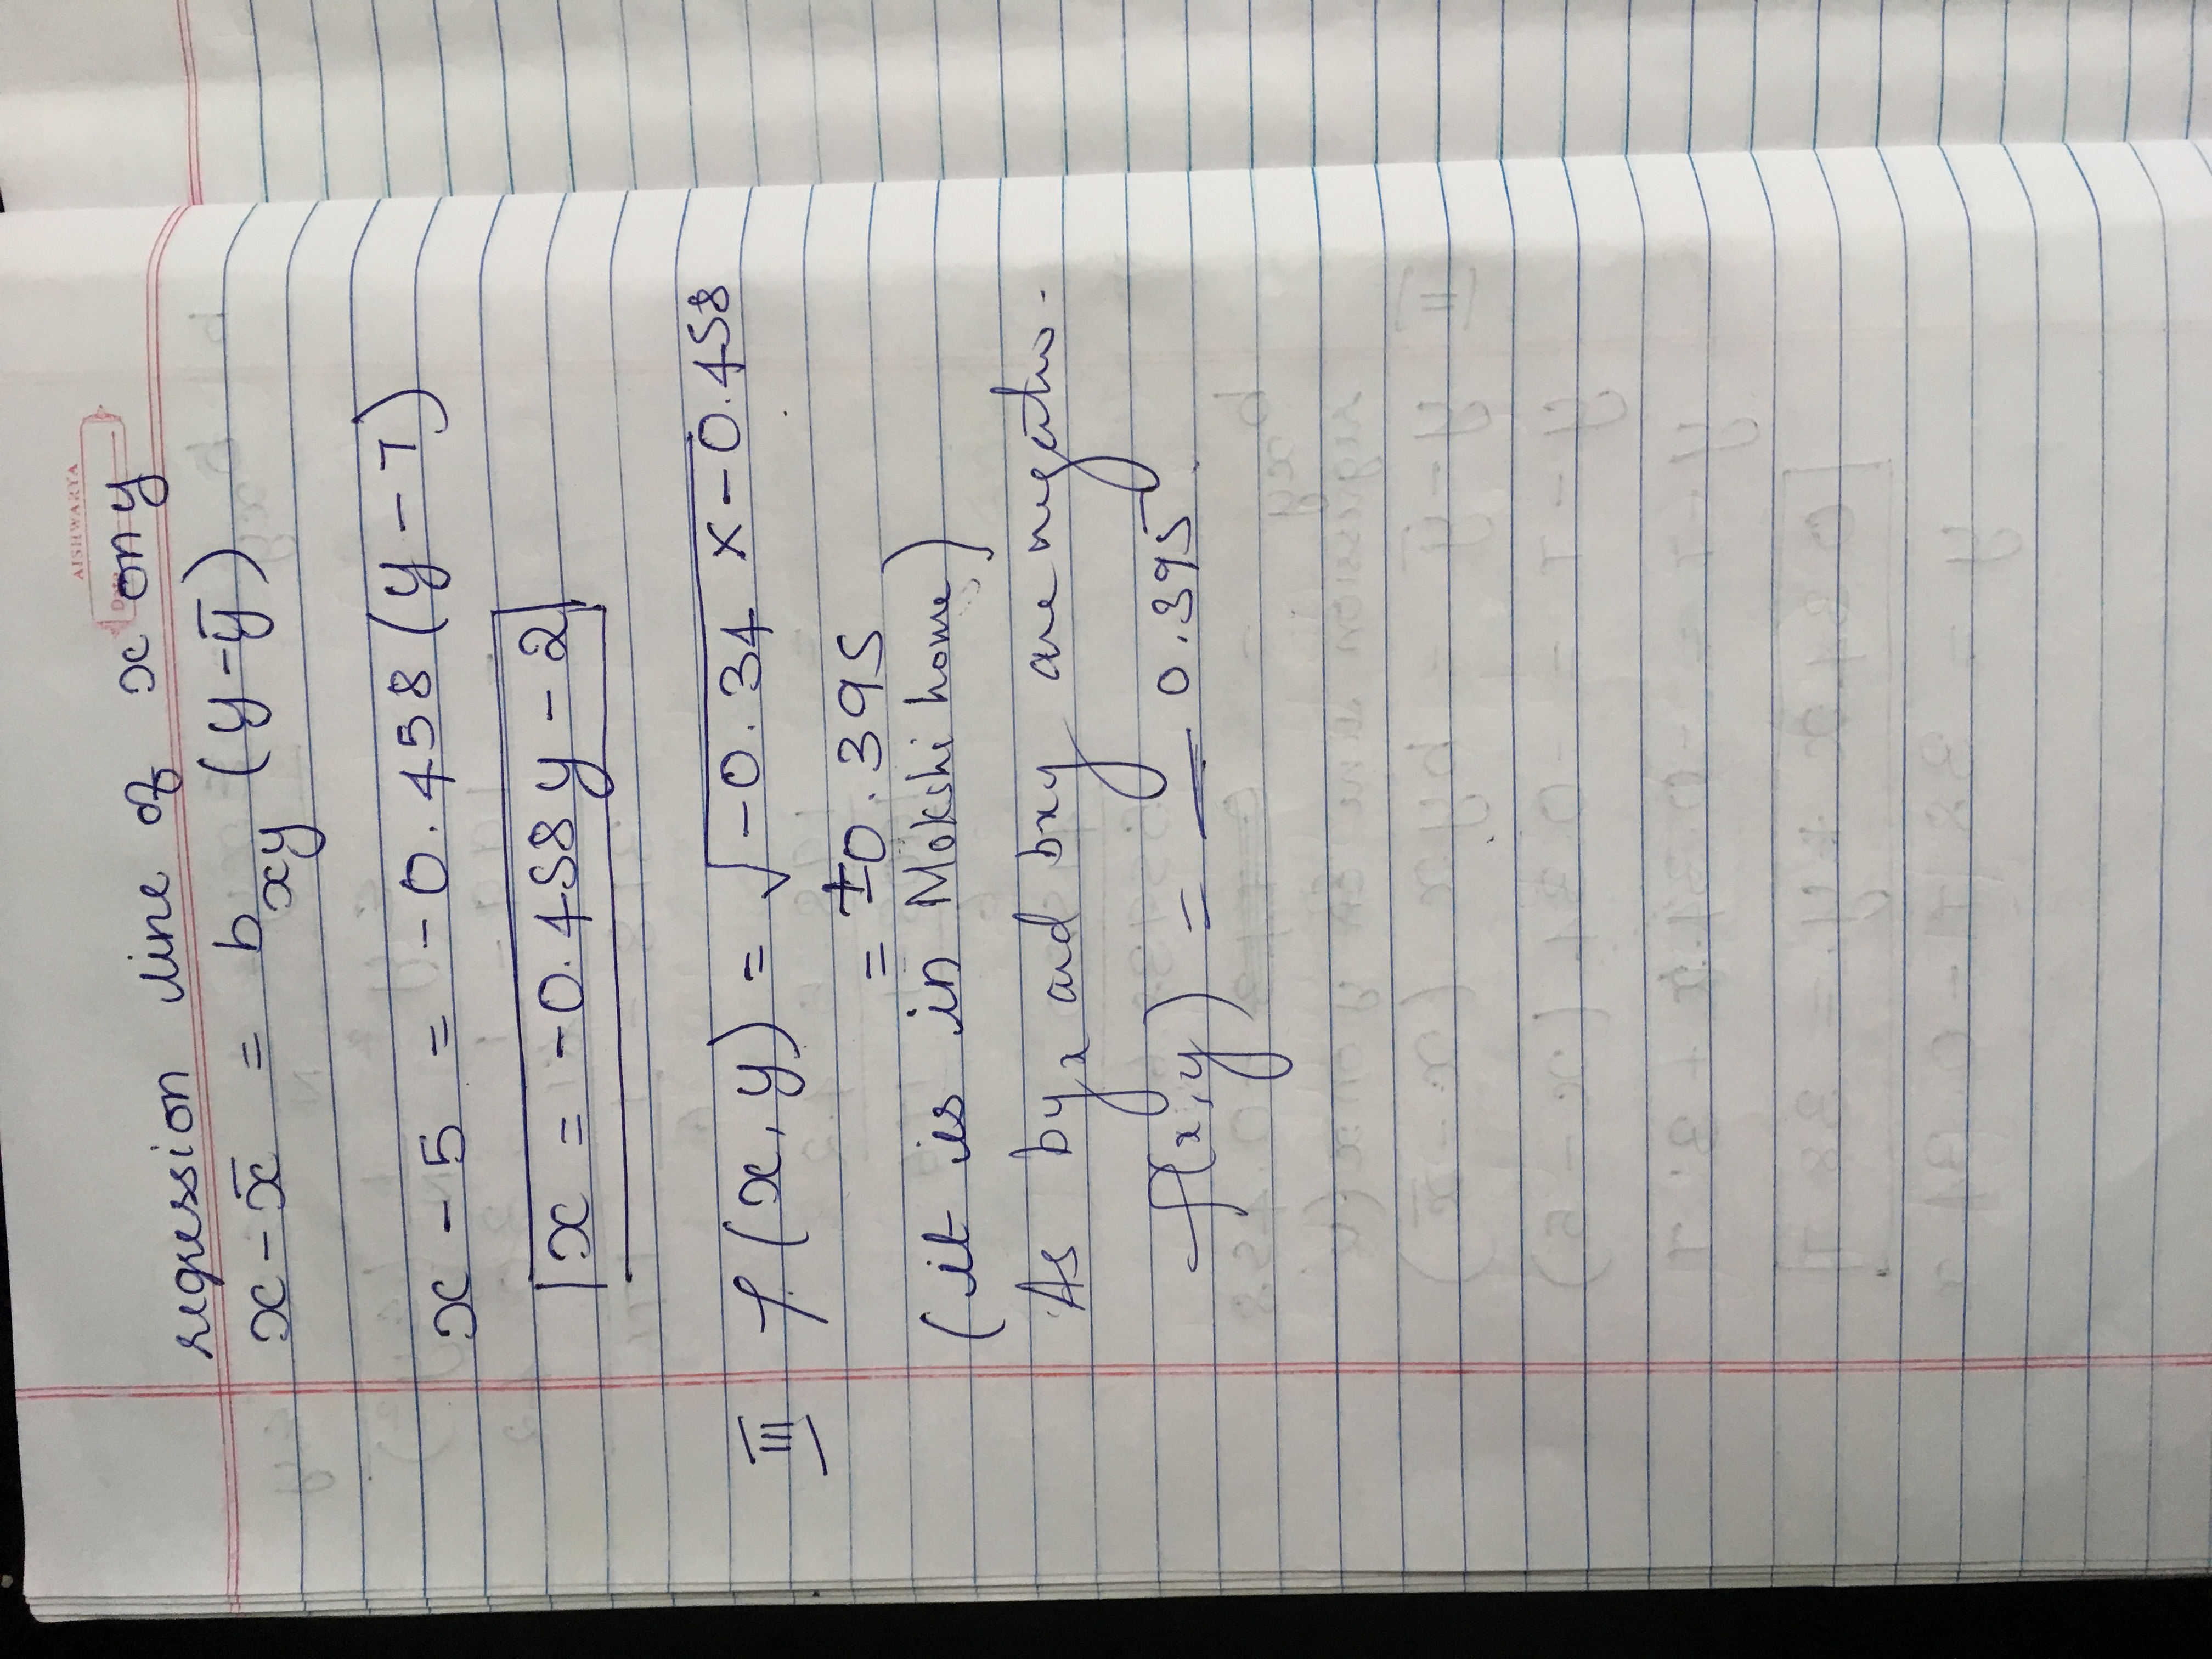 AISHWARYA
Date
regression line of x on y
x - x̄ = b_xy (y - ȳ)
x - 5 = -0.458 (y - 7)
x = -0.458 y - 2
III f(x, y) = √-0.34 × -0.458
= ±0.395
(it is in Mokshi home)
As byx and bxy are negativ.
f(x, y) = - 0.395